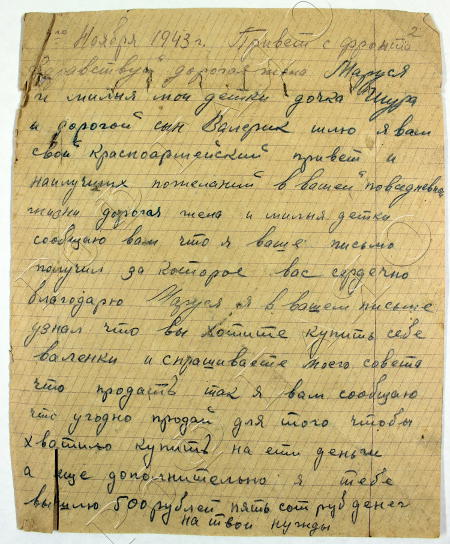 2
го Ноября 1943 г. Привет с фронта
Здравствуй дорогая жена Маруся
и милыя мои детки дочка Шура
и дорогой сын Валерик шлю я вам
свой красноармейский привет и
наилучших пожеланий в вашей повседневной
жизни дорогая жена и милыя детки
сообщаю вам что я ваше письмо
получил за которое вас сердечно
благодарю Маруся я в вашем письме
узнал что вы хотите купить себе
валенки и спрашиваете моего совета
что продать так я вам сообщаю
что угодно продай для того чтобы
хватило купить на ети деньги
а еще дополнительно я тебе
вышлю 500 рублей пять сот руб денег
на твои нужды